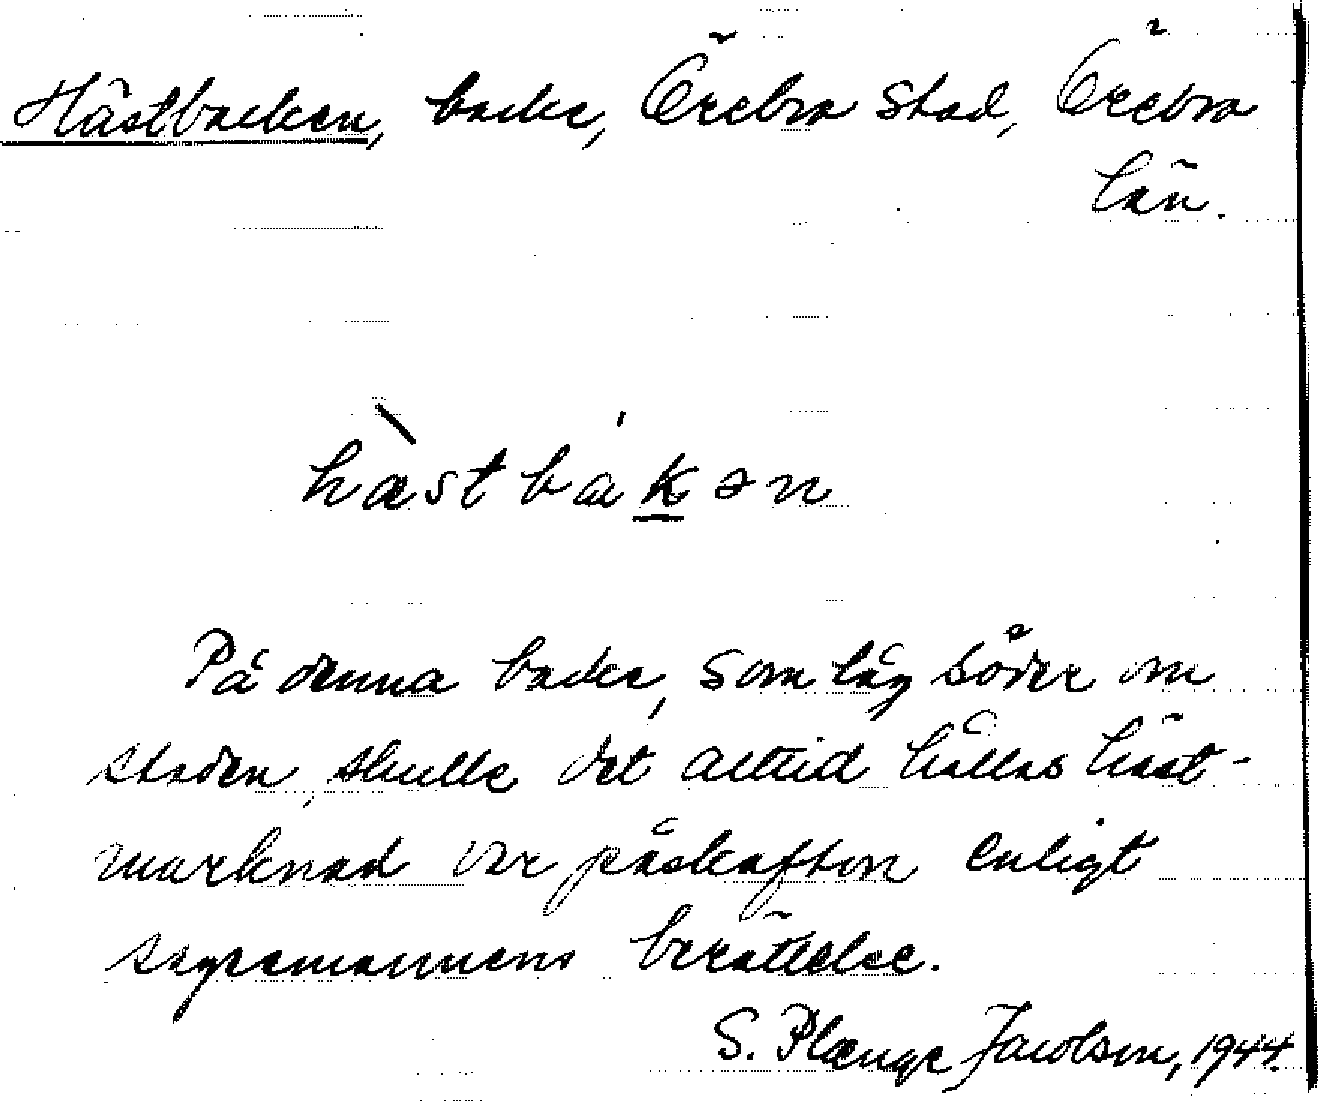 Hästbacken, backe, Örebro stad, Örebro
län.
hæ̀stbákən
På denna backe, som låg söder om
staden, skulle det alltid hållas häst-
marknad var påskafton enligt
sagesmannens berättelse.
S. Plænge Jacobson, 1944.